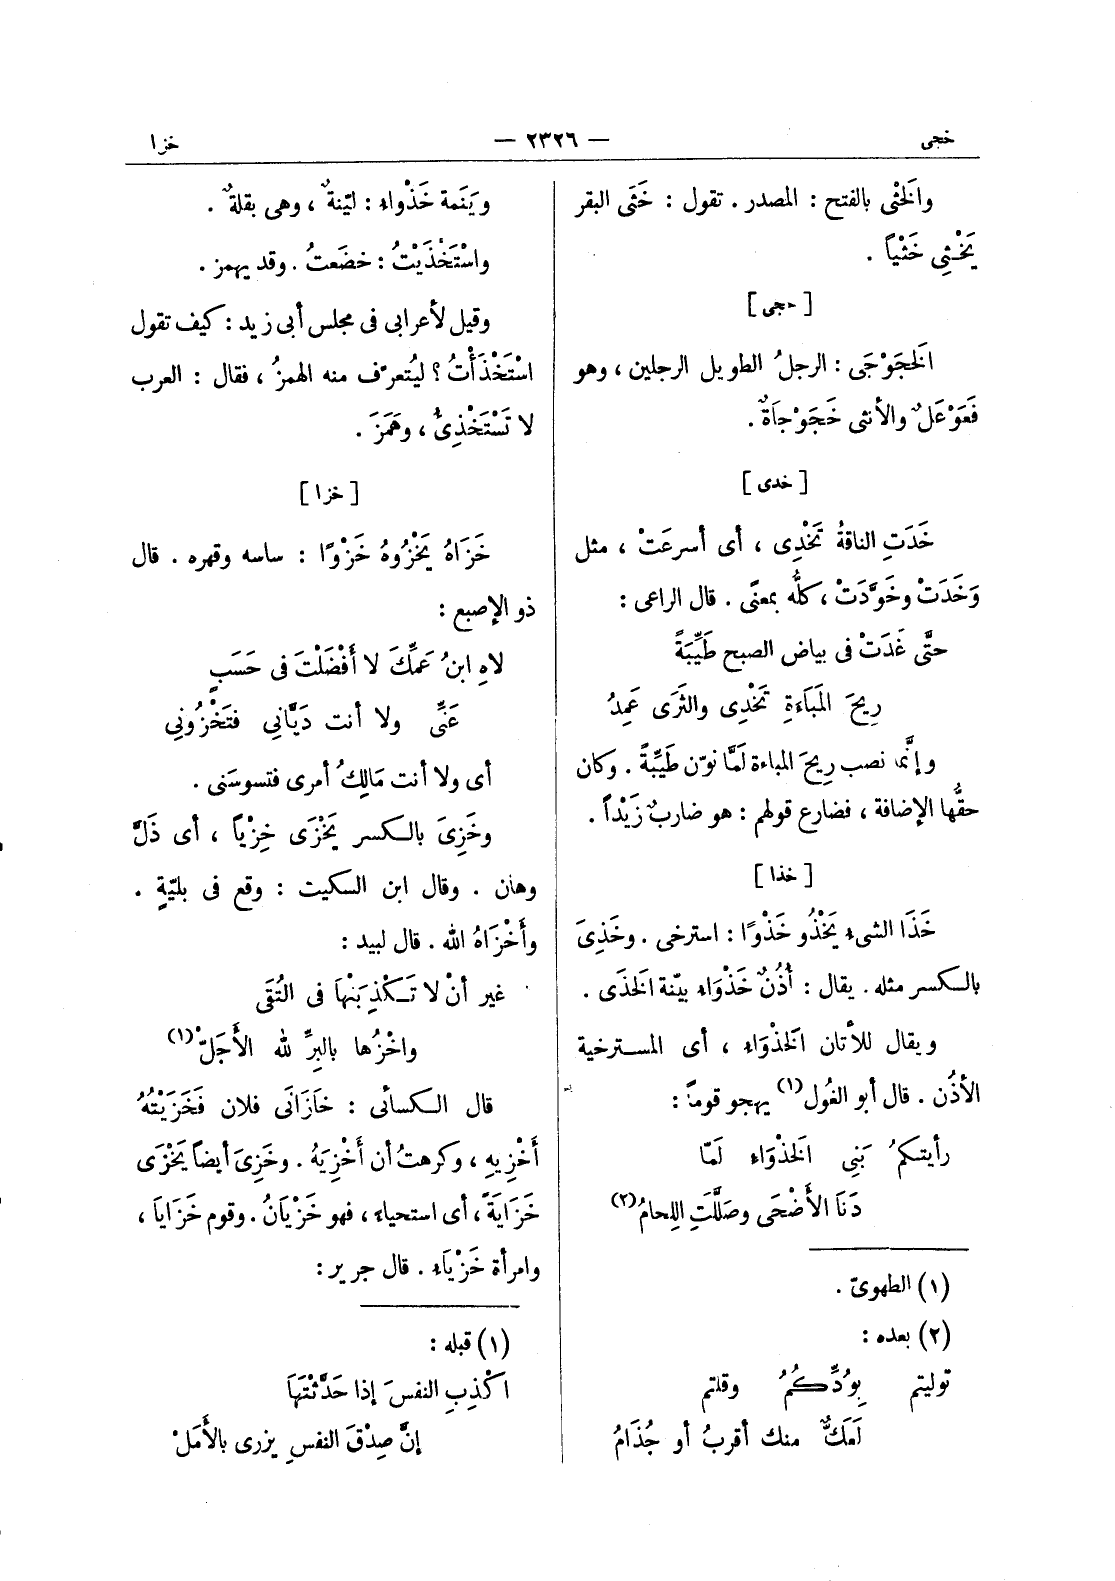 خجى — ٢٣٢٦ — خزا
والَخثْى بالفتح : المصدر . تقول : خَثَى البقر
يَخْثِى خَثْياً .
[ خجى ]
الَخجَوْجَى : الرجلُ الطويل الرجلين ، وهو
فَعَوْعَلٌ والأنثى خَجَوْجاَةٌ .
[ خدى ]
خَدَتِ الناقةُ تَخْدِى ، أى أسرعَتْ ، مثل
وَخَدَتْ وخَوَّدَتْ ، كلُّه بمعنًى . قال الراعى :
حتَّى غَدَتْ فى بياض الصبح طَيِّبَةً
رِيحَ المَبَاَءَةِ تَخْدِى والثَرَى عَمِدُ
وإنَّما نصب رِيحَ المباءة لَمَّا نوّن طَيِّبَةً . وكان
حقُّها الإضافة ، فضارع قولهم : هو ضاربٌ زَيْداً .
[ خذا ]
خَذَا الشىء يَخْذُو خَذْوًا : استرخى . وخَذِىَ
بالكسر مثله . يقال : أُذُنٌ خَذْوَاء بيّنة الَخذَى .
ويقال للأتان الَخذْوَاء ، أى المسترخية
الأذُن . قال أبو الغُول(١) يهجو قوماً :
رأيتكمُ بَنِى الَخذْوَاءِ لَمّا
دَنَا الأَضْحَى وصَلَّتِ اللِحامُ(٢)
(١) الطهوىّ .
(٢) بعده :
توليتم بِوُدِّكُمُ وقلتم
لَعَكٌّ منك أقربُ أو جُذَامُ
ويَنَمة خَذْواء : ليّنةٌ ، وهى بقلةٌ .
واسْتَخْذَيْتُ : خضَعتُ . وقد يهمز .
وقيل لأعرابى فى مجلس أبى زيد : كيف تقول
اسْتَخْذَأْتُ ؟ ليُتعرّف منه الهمزُ ، فقال : العرب
لا تَسْتَخْذِئُ ، وهَمَزَ .
[ خزا ]
خَزَاهُ يَخْزُوهُ خَزْوًا : ساسه وقهره . قال
ذو الإصبع :
لاهِ ابنُ عَمِّكَ لا أَفْضَلْتَ فى حَسَبٍ
عَنِّى ولا أنت دَيَّانِى فتَخْزُونِى
أى ولا أنت مَالِكُ أمرى فتسوسَنى .
وخَزِىَ بالكسر يَخْزَى خِزْياً ، أى ذَلَّ
وهان . وقال ابن السكيت : وقع فى بليّةٍ .
وأَخْزَاهُ الله . قال لبيد :
غير أنْ لا تَكْذِبَنْهَا فى التُقَى
واخْزُها بالبِرِّ لله الأَجَلّْ(١)
قال الكسائى : خَازَانَى فلان فَخَزَيْتُهُ
أَخْزِيهِ ، وكرهتُ أن أَخْزِيَهُ . وخَزِىَ أيضاً يَخْزَى
خَزَايَةً ، أى استحياء ، فهو خَزْيَانُ . وقوم خَزَايَا ،
وامرأة خَزْيَاء . قال جرير :
(١) قبله :
اكْذِبِ النفسَ إذا حَدَّثْتَهَا
إنَّ صِدْقَ النفسِ يزرى بالأَمَلْ